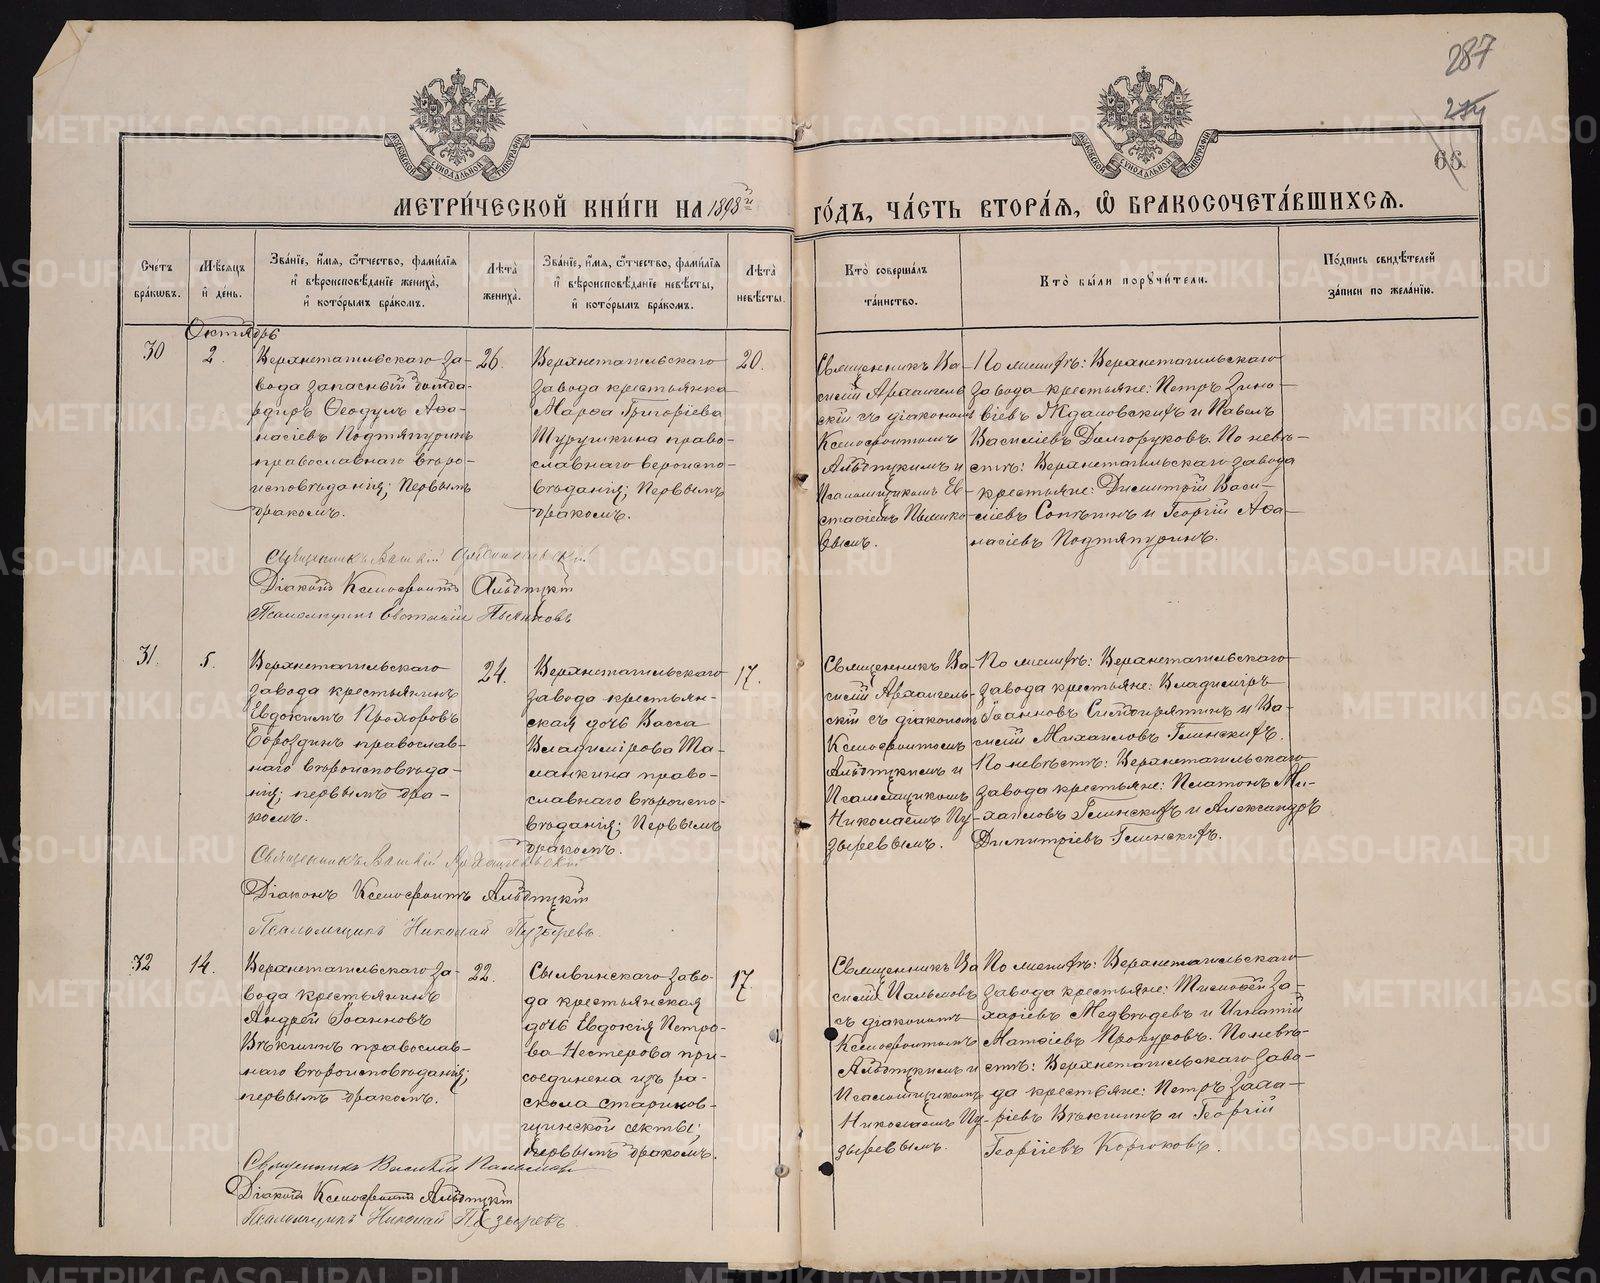 287
274
65
МОСКОВСКОЙ СУНОДАЛЬНОЙ ТИПОГРАФІИ
МОСКОВСКОЙ СУНОДАЛЬНОЙ ТИПОГРАФІИ
МЕТРИ́ЧЕСКОЙ КНИ́ГИ НА 1898й
ГО́ДЪ, ЧА́СТЬ ВТОРА́Я, Ѡ БРАКОСОЧЕТА́ВШИХСЯ.
Сче́тъ бра́кѡвъ.
Мѣ́сяцъ и҆ де́нь.
Зва́нїе, и҆́мя, ѻ҆́тчество, фами́лїя и҆ вѣроисповѣ́данїе жениха̀, и҆ кото́рымъ бра́комъ.
Лѣ́та̀ жениха̀.
Зва́нїе, и҆́мя, ѻ҆́тчество, фами́лїя и҆ вѣроисповѣ́данїе невѣ́сты, и҆ кото́рымъ бра́комъ.
Лѣ́та̀ невѣ́сты.
Кто̀ соверша́лъ та́инство.
Кто̀ бы́ли порꙋчи́тели.
По́дпись свидѣ́телей за́писи по жела́нїю.
Октябрь
30
2.
Верхнетагильскаго за-
вода запасный бомба-
рдиръ Ѳеодулъ Аѳа-
насіевъ Подтяпуринъ
православнаго вѣро-
исповѣданія; Первымъ
бракомъ.
26.
Верхнетагильскаго
завода крестьянка
Марѳа Григоріева
Турушкина право-
славнаго вероиспо-
вѣданія; Первымъ
бракомъ.
20.
Священникъ Ва-
силій Архангель
скій съ діакономъ
Ксенофонтомъ
Альбтцкимъ и
Псаломщикомъ Ев-
стафіемъ Пьянко-
вымъ.
По женихѣ: Верхнетагильскаго
завода крестьяне: Петръ Зино-
віевъ Ждановскихъ и Павелъ
Василіевъ Долгоруковъ. По невѣ-
стѣ: Верхнетагильскаго завода
крестьяне: Димитрій Васи-
ліевъ Сопѣтинъ и Георгій Аѳа-
насіевъ Подтяпуринъ.
Священникъ Василій Архангельскій
Діаконъ Ксенофонтъ Альбтцкій
Псаломщикъ Евстафій Пьянковъ
31.
5.
Верхнетагильскаго
завода крестьянинъ
Евдокимъ Прохоровъ
Бороздинъ православ-
наго вѣроисповѣда-
нія; первымъ бра-
комъ.
24.
Верхнетагильскаго
завода крестьян-
ская дочь Васса
Владимірова Ма-
ланкина право-
славнаго вѣроиспо-
вѣданія; Первымъ
бракомъ.
17.
Священникъ Ва-
силій Архангель-
скій съ діакономъ
Ксенофонтомъ
Альбтцкимъ и
Псаломщикомъ
Николаемъ Пу-
зыревымъ.
По женихѣ: Верхнетагильскаго
завода крестьяне: Владиміръ
Іоанновъ и Ва-
силій Михаиловъ Глинскихъ.
По невѣстѣ: Верхнетагильскаго
завода крестьяне: Платонъ Ми-
хаиловъ Глинскихъ и Александръ
Димитріевъ Глинскихъ.
Священникъ Василій Архангельскій
Діаконъ Ксенофонтъ Альбтцкій
Псаломщикъ Николай Пузыревъ.
32
14.
Верхнетагильскаго за-
вода крестьянинъ
Андрей Іоанновъ
Вѣкшинъ православ-
наго вѣроисповѣданія;
первымъ бракомъ.
22.
Сылвинскаго заво-
да крестьянская
дочь Евдокія Петро-
ва Нестерова при-
соединена изъ ра-
скола стариков-
щинской секты;
первымъ бракомъ.
17
Священникъ Ва
силій Пальмовъ
съ діакономъ
Ксенофонтомъ
Альбтцкимъ и
Псаломщикомъ
Николаемъ Пу-
зыревымъ.
По женихѣ: Верхнетагильскаго
завода крестьяне: Тимоѳей За-
харіевъ Медвѣдевъ и Игнатій
Матѳіевъ Прокуровъ. По невѣ-
стѣ: Верхнетагильскаго заво-
да крестьяне: Петръ Заха-
ріевъ Вѣкшинъ и Георгій
Георгіевъ Корюковъ.
Священникъ Василій Пальмовъ
Діаконъ Ксенофонтъ Альбтцкій
Псаломщикъ Николай Пузыревъ
METRIKI.GASO-URAL.RU